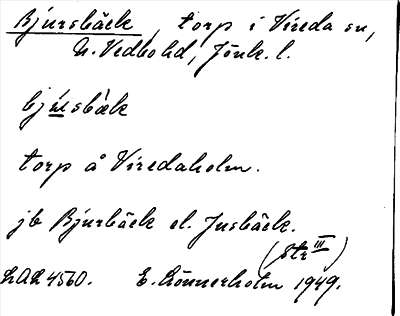 Bjursbäck, torp i Vireda sn,
N. Vedbo hd, Jönk. l.
torp å Viredaholm.
jb Bjurbäck el. Jusbäck.
(Str III)
LAL 4560. E. Rönnerholm 1949.